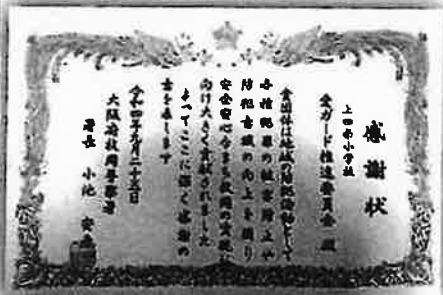 感謝状
上四条小学校
愛ガード推進委員会 殿
貴団体は地域防犯活動として
各種犯罪の被害防止や
防犯意識の向上を図り
安全安心なまち枚岡の実現に
向け大きく貢献されました
よってここに深く感謝の
意を表します
令和四年九月二十五日
大阪府枚岡警察署
署長 小池 安